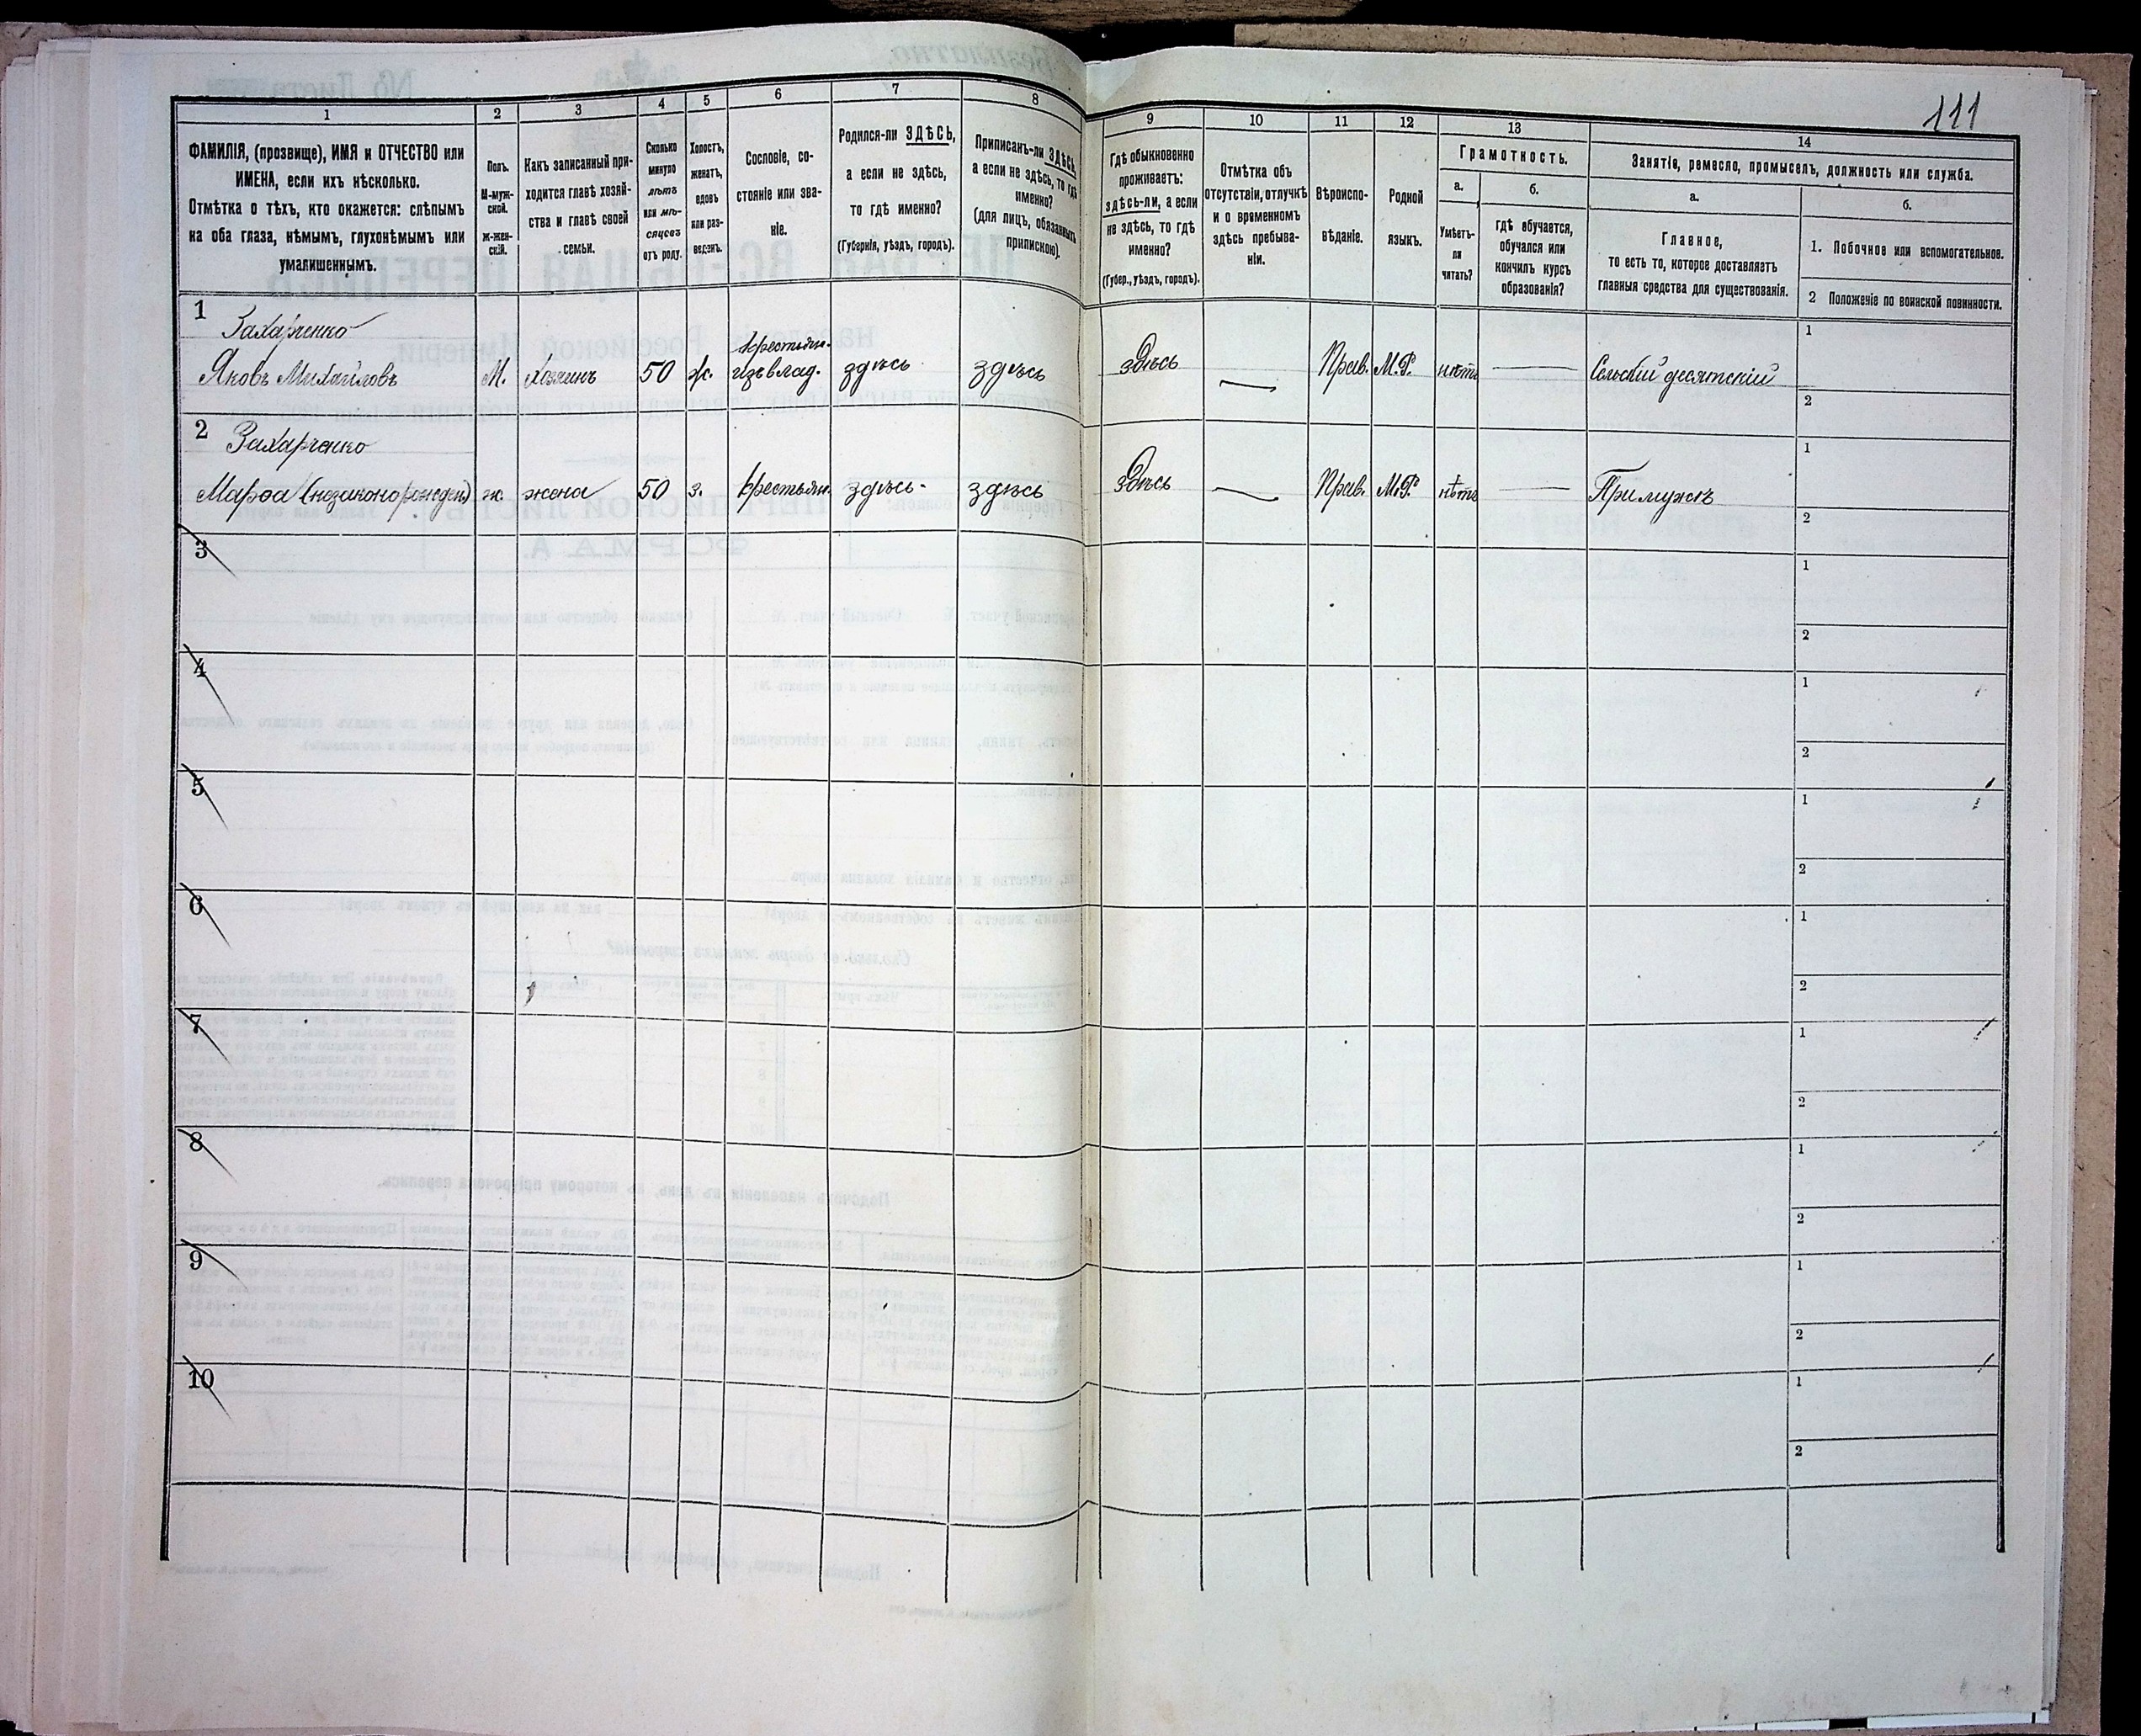 111
1
2
3
4
5
6
7
8
9
10
11
12
13
14
ФАМИЛІЯ, (прозвище), ИМЯ и ОТЧЕСТВО или
ИМЕНА, если ихъ нѣсколько.
Отмѣтка о тѣхъ, кто окажется: слѣпымъ
на оба глаза, нѣмымъ, глухонѣмымъ или
умалишеннымъ.
Полъ.
М-муж-
ской.
ж-жен-
скій.
Какъ записанный при-
ходится главѣ хозяй-
ства и главѣ своей
семьи.
Сколько
минуло
лѣтъ
или мѣ-
сяцевъ
отъ роду.
Холостъ,
женатъ,
вдовъ
или раз-
веденъ.
Сословіе, со-
стояніе или зва-
ніе.
Родился-ли ЗДѢСЬ,
а если не здѣсь,
то гдѣ именно?
(Губернія, уѣздъ, городъ).
Приписанъ-ли ЗДѢСЬ,
а если не здѣсь, то гдѣ
именно?
(для лицъ, обязанныхъ
припискою).
Гдѣ обыкновенно
проживаетъ:
здѣсь-ли, а если
не здѣсь, то гдѣ
именно?
(Губер., уѣздъ, городъ).
Отмѣтка объ
отсутствіи, отлучкѣ
и о временномъ
здѣсь пребыва-
ніи.
Вѣроиспо-
вѣданіе.
Родной
языкъ.
Грамотность.
а.
б.
Умѣетъ-
ли
читать?
гдѣ обучается,
обучался или
кончилъ курсъ
образованія?
Занятіе, ремесло, промыселъ, должность или служба.
а.
б.
Главное,
то есть то, которое доставляетъ
главныя средства для существованія.
1. Побочное или вспомогательное.
2 Положеніе по воинской повинности.
1
Захарченко
Яковъ Михайловъ
М.
хозяинъ
50
ж.
крестьян.
изъ влад.
здѣсь
здѣсь
здѣсь
—
Прав.
М.Р.
нѣтъ
—
Сельскій десятскій
1
2
2
Захарченко
Марѳа (незаконорожден)
ж
жена
50
з.
крестьян.
здѣсь
здѣсь
Здѣсь
—
Прав.
М.Р.
нѣтъ
—
При мужѣ
1
2
3
1
2
4
1
2
5
1
2
6
1
2
7
1
2
8
1
2
9
1
2
10
1
2